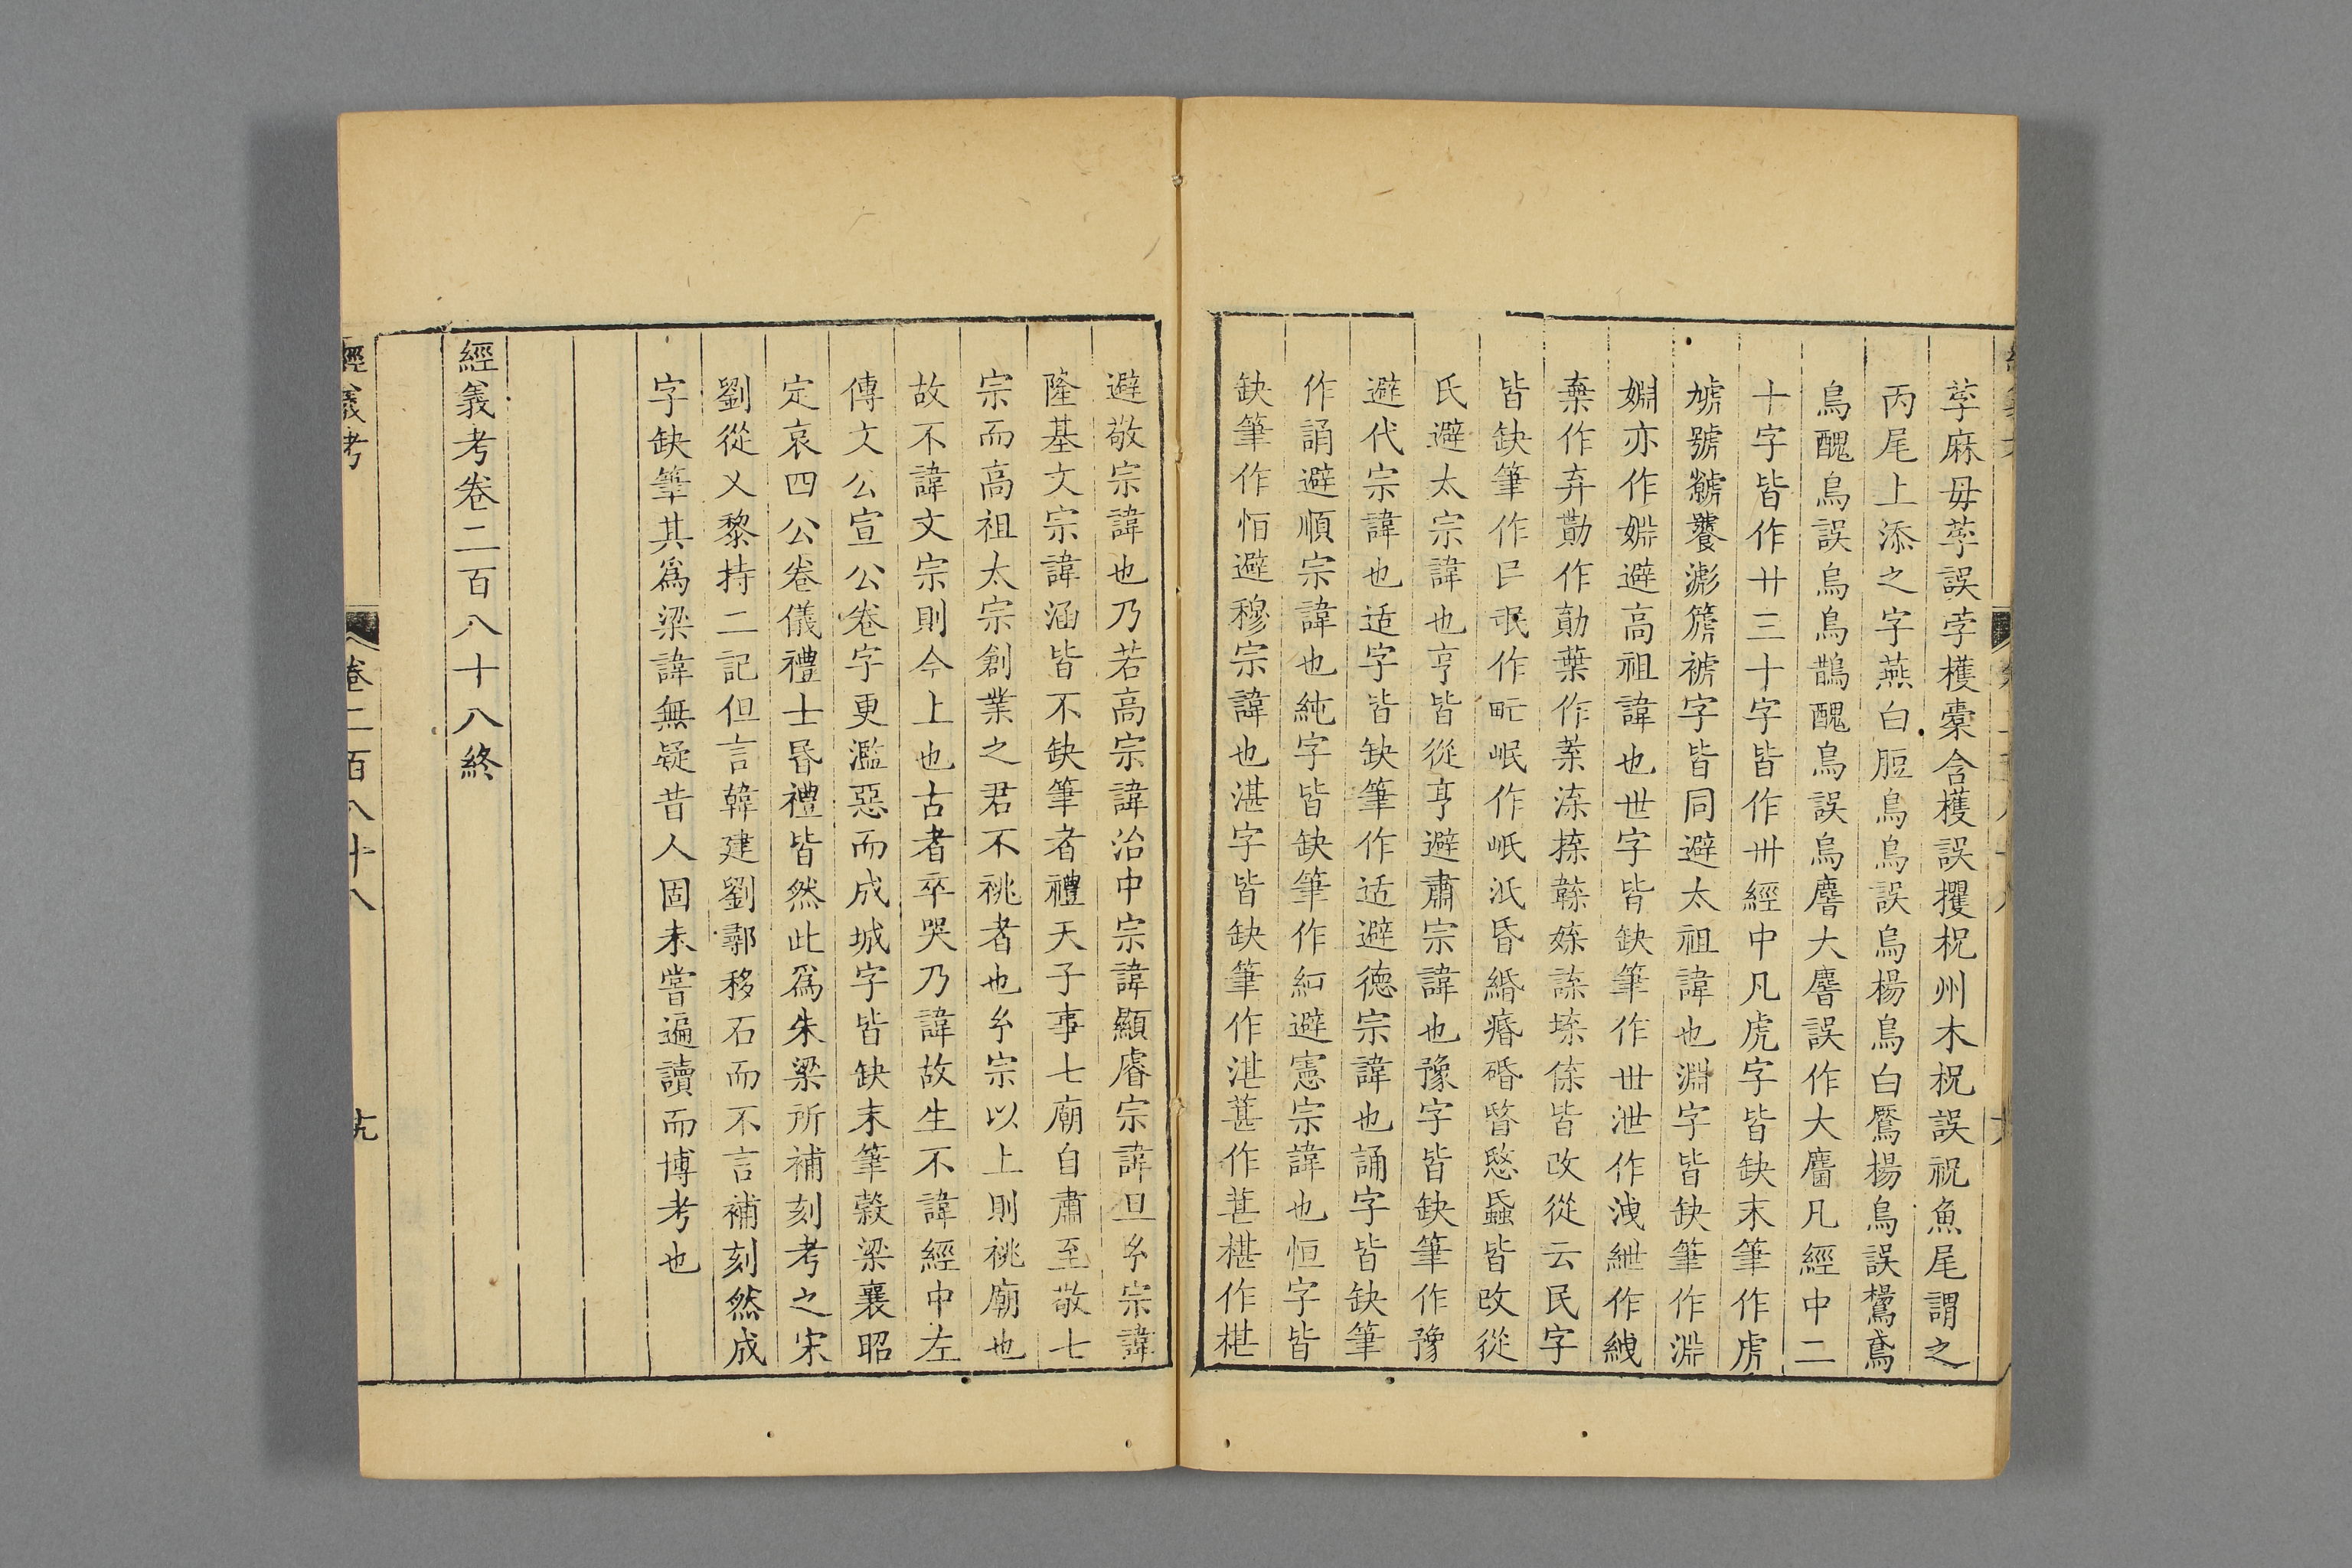 荸麻母荸誤荸檴櫜含檴誤攫柷州木柷誤祝魚尾謂之
丙尾上添之字燕白脰烏烏誤鳥楊鳥白鷢楊鳥誤鸉鳶
烏醜烏誤鳥鳥鵲醜烏誤鳥麔大麔誤作大麕凡經中二
十字皆作廿三十字皆作卅經中凡虎字皆缺末筆作虎
號字皆同避太祖諱也淵字皆缺筆作淵
婣亦作婣避高祖諱也世字皆缺筆作世泄作洩紲作絏
棄作弃勩作勩葉作葉皆改從云民字
皆缺筆作民氓作甿岷作岷泯昏緡痻碈暋愍蟁皆改從
氏避太宗諱也亨皆從亨避肅宗諱也豫字皆缺筆作豫
避代宗諱也适字皆缺筆作适避德宗諱也誦字皆缺筆
作誦避順宗諱也純字皆缺筆作紃避憲宗諱也恒字皆
缺筆作恒避穆宗諱也湛字皆缺筆作湛葚作葚椹作椹
避敬宗諱也乃若高宗諱治中宗諱顯睿宗諱旦玄宗諱
隆基文宗諱涵皆不缺筆者禮天子事七廟自肅至敬七
宗而高祖太宗創業之君不祧者也玄宗以上則祧廟也
故不諱文宗則今上也古者卒哭乃諱故生不諱經中左
傳文公宣公卷字更濫惡而成城字皆缺末筆穀梁襄昭
定哀四公卷儀禮士昏禮皆然此爲朱梁所補刻考之宋
劉從乂黎持二記但言韓建劉鄩移石而不言補刻然成
字缺筆其爲梁諱無疑昔人固未嘗遍讀而博考也
經義考卷二百八十八終
經義考 卷二百八十八 十九